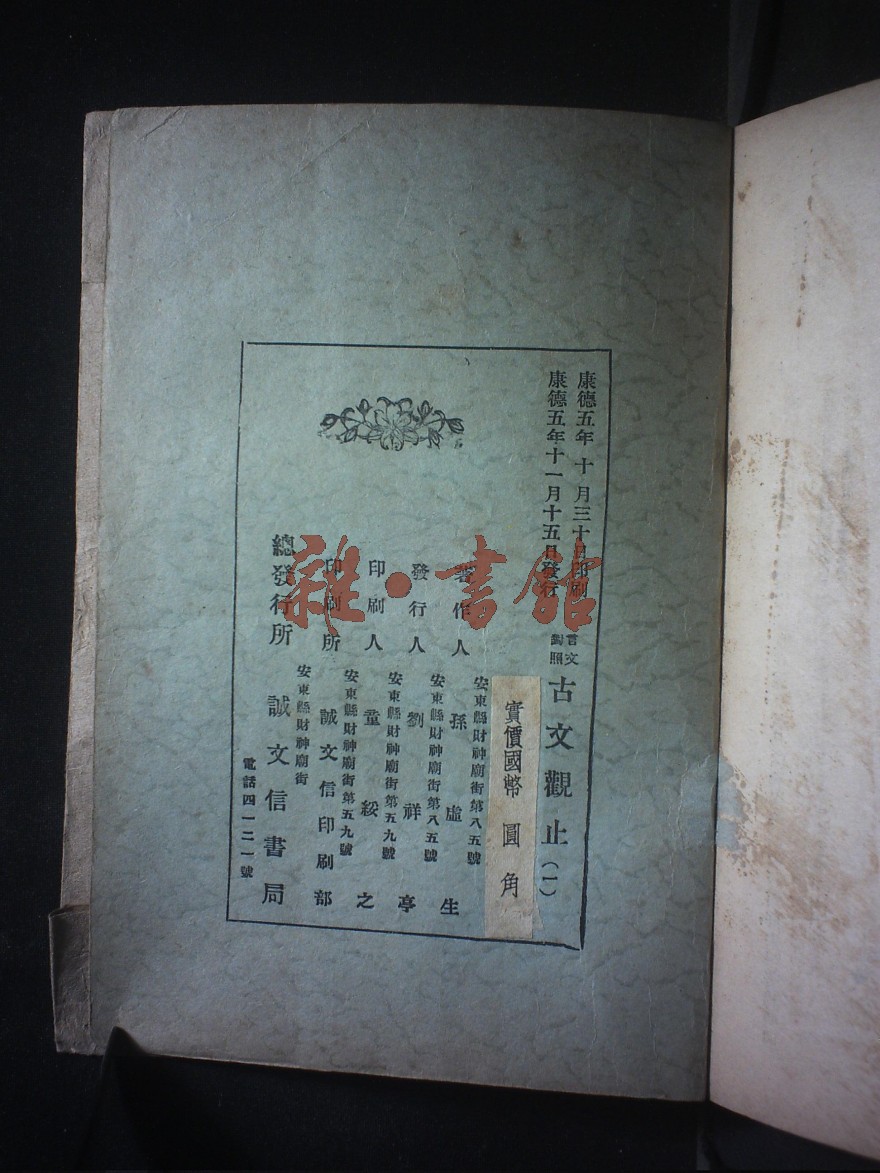 康德五年 十 月三十日印刷
康德五年十一月十五日發行
言文
對照
古文觀止(一)
實價國幣 圓 角
安東縣財神廟街第八五號
著作人 孫虛生
安東縣財神廟街第八五號
發行人 劉祥亭
安東縣財神廟街第五九號
印刷人 童綏之
安東縣財神廟街第五九號
印刷所 誠文信印刷部
安東縣財神廟街
總發行所 誠文信書局
電話四一二一號
雜·書館